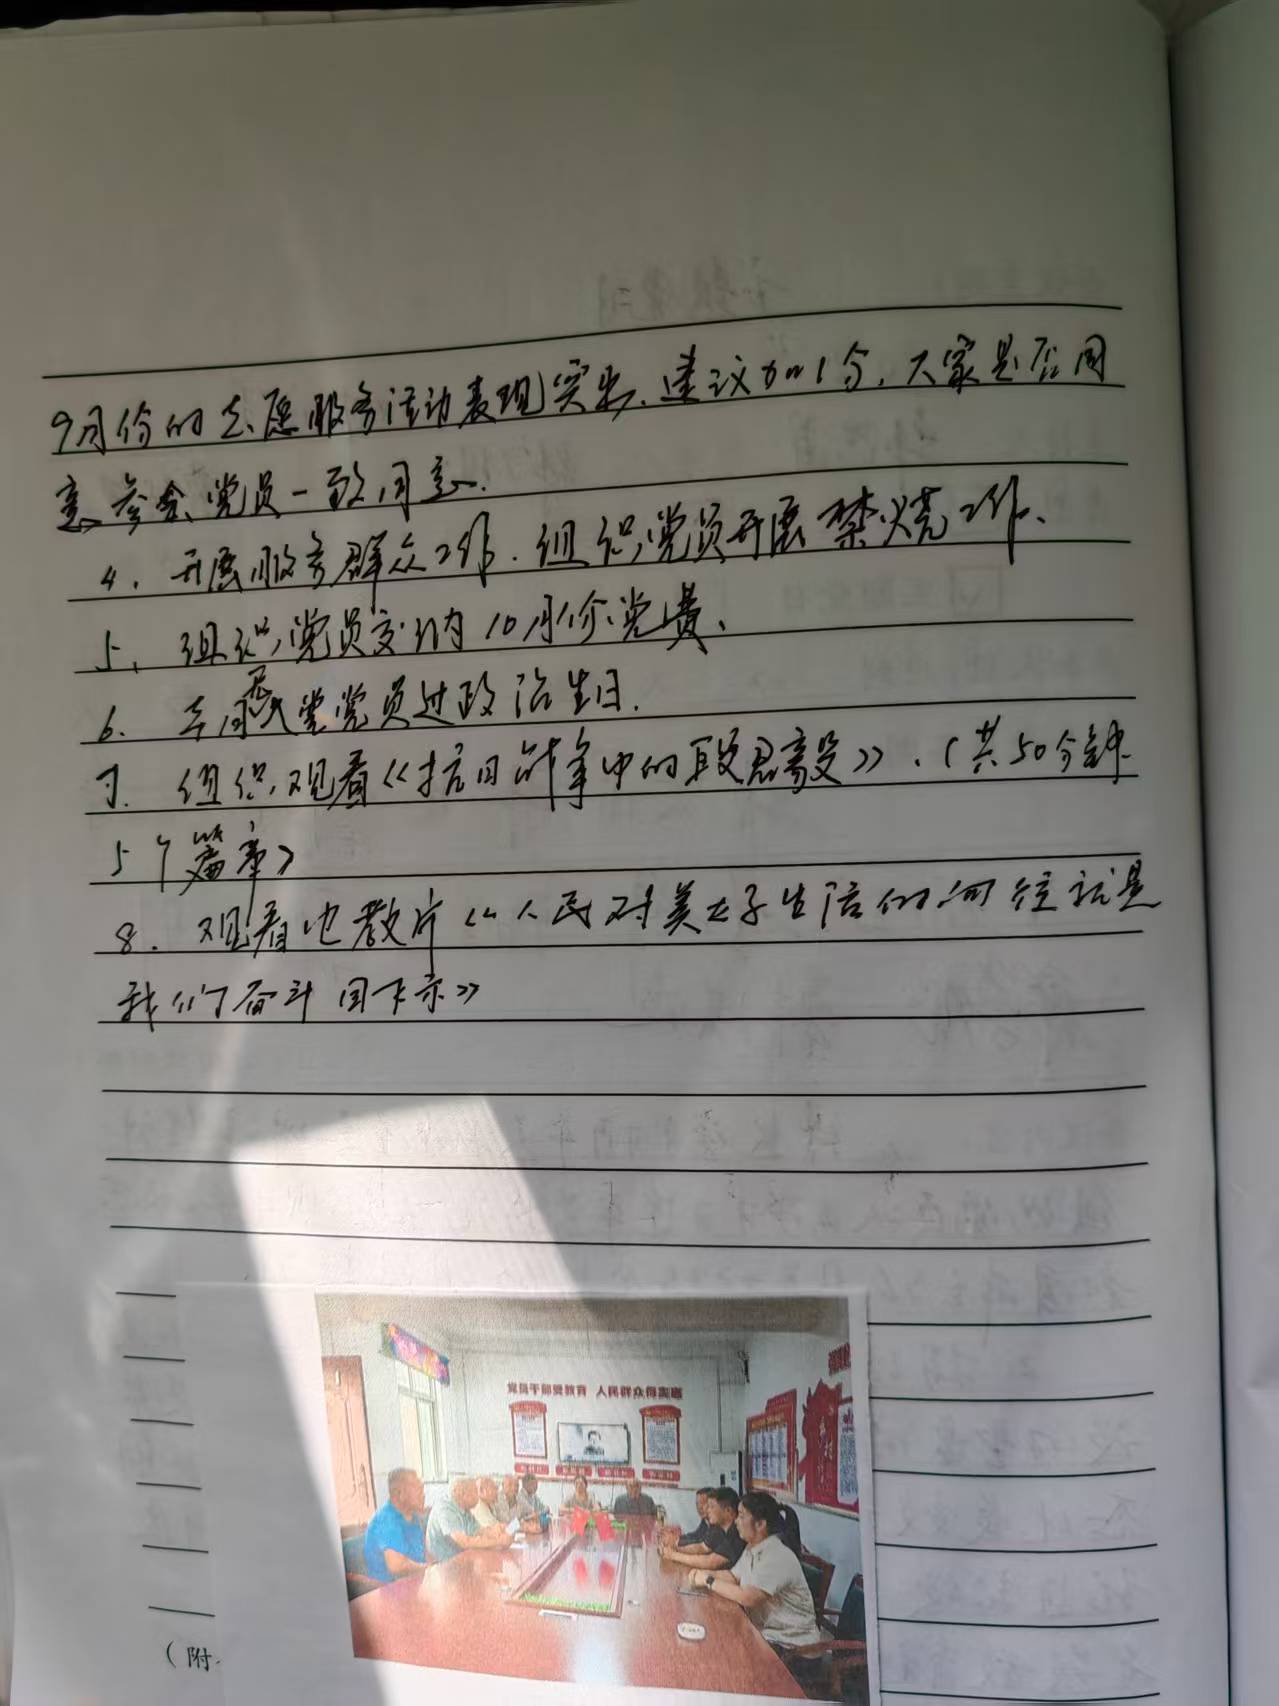 9月份的志愿服务活动表现突出,建议加1分,大家是否同
意,参会党员一致同意.
4. 开展服务群众工作.组织党员开展禁烧工作.
5、组织党员交纳10月份党费、
6. 本月入党党员过政治生日.
7. 组织观看《抗日战争中的段君毅》.(共50分钟
5个篇章)
8. 观看电教片《人民对美好生活的向往就是
我们奋斗目标》
党员干部受教育 人民群众得实惠
(附